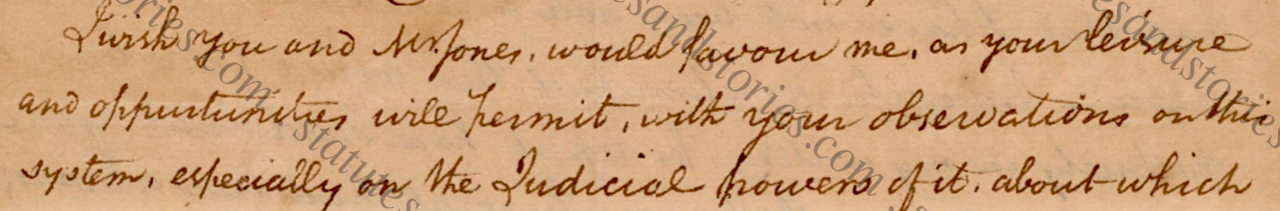 I wish you and Mr. Jones, would favour me, as your leisure
and oppurtunities will permit, with your observations on this
system, especially on the Judicial powers of it, about which